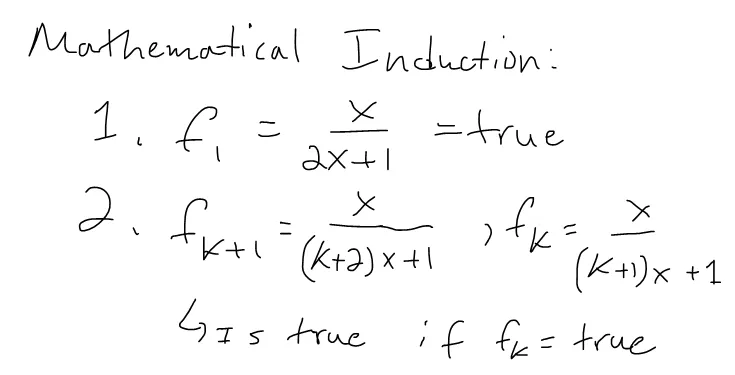 Mathematical Induction:
1. f₁ = x/(2x+1) = true
2. fₖ₊₁ = x/((k+2)x+1) , fₖ = x/((k+1)x+1)
↳ Is true if fₖ = true